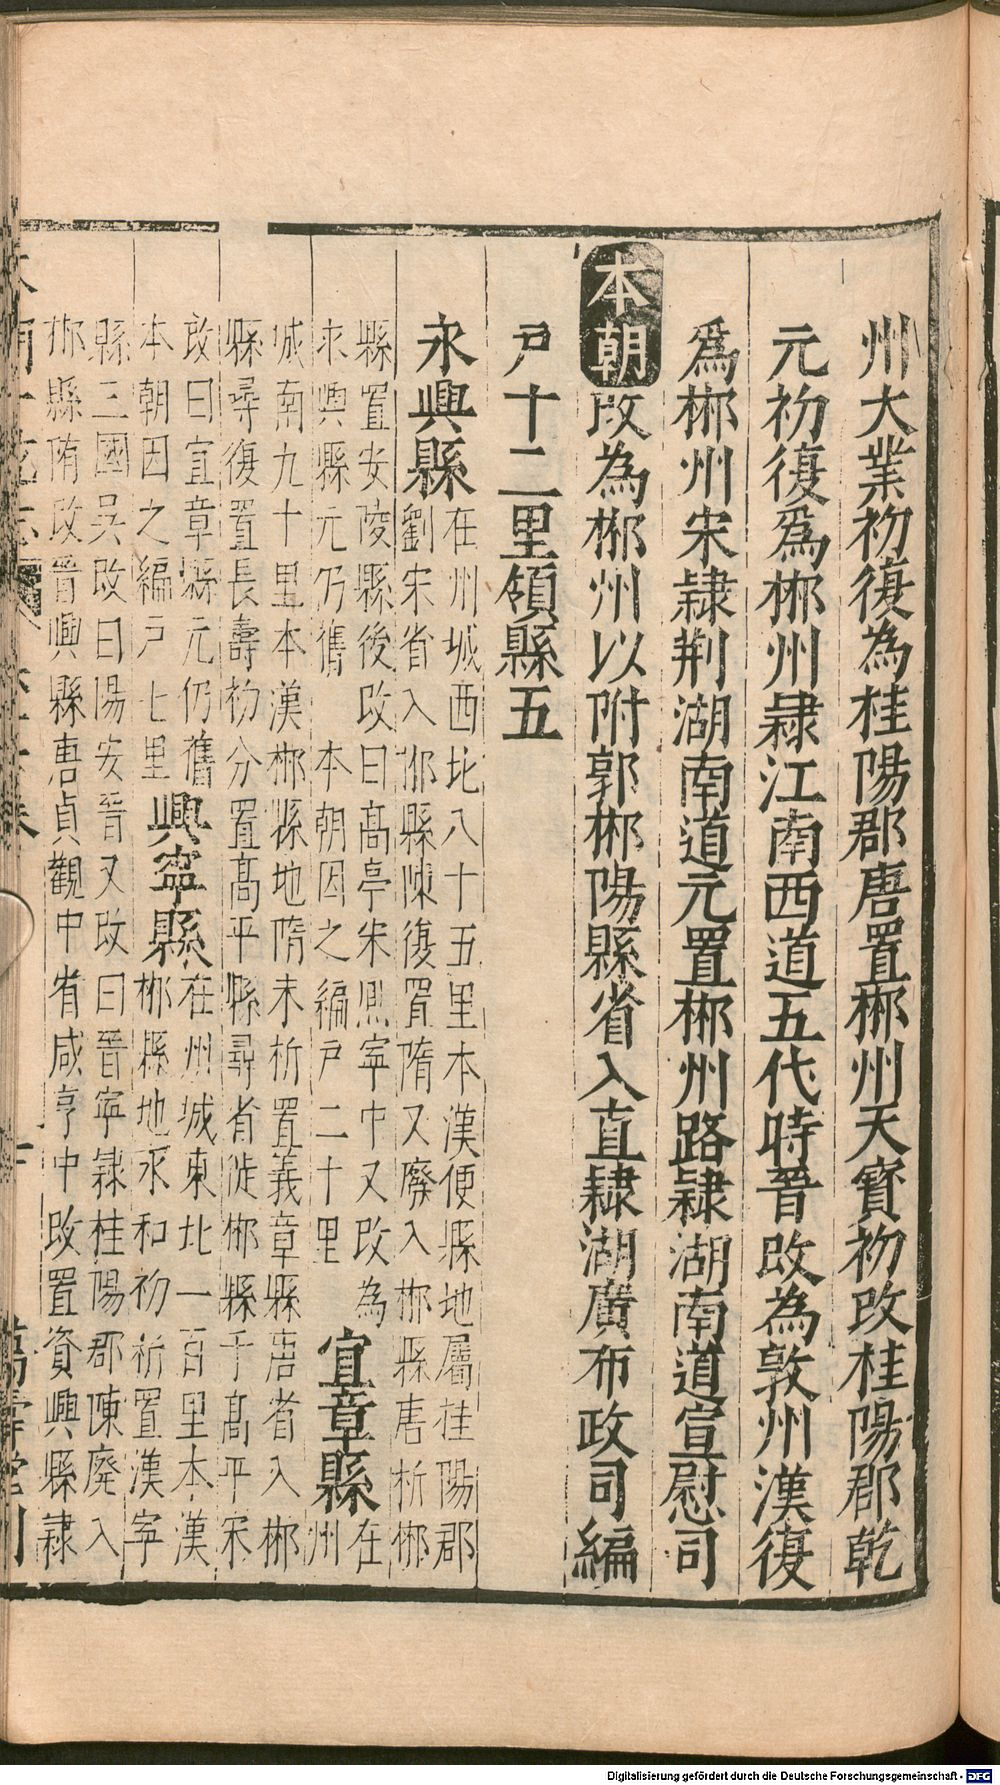 州大業初復為桂陽郡唐置郴州天寶初改桂陽郡乾
元初復爲郴州隷江南西道五代時晉改為敦州漢復
爲郴州宋隷荆湖南道元置郴州路隷湖南道宣慰司
本朝改為郴州以附郭郴陽縣省入直隷湖廣布政司編
戸十二里領縣五
永興縣
在州城西北八十五里本漢便縣地屬桂陽郡
劉宋省入郴縣陳復置隋又廢入郴縣唐析郴
縣置安陵縣後改曰髙亭宋熈寧中又改為
永興縣元仍舊 本朝因之編戸二十里
宜章縣
在
州
城南九十里本漢郴縣地隋末析置義章縣唐省入郴
縣尋復置長壽初分置髙平縣尋省徙郴縣于髙平宋
改曰宜章縣元仍舊
本朝因之編戸七里
興寧縣
在州城東北一百里本漢
郴縣地永和初析置漢寧
縣三國吳改曰陽安晉又改曰晉寧隷桂陽郡陳廢入
郴縣隋改晉興縣唐貞觀中省咸亨中改置資興縣隷
Digitalisierung gefördert durch die Deutsche Forschungsgemeinschaft - DFG